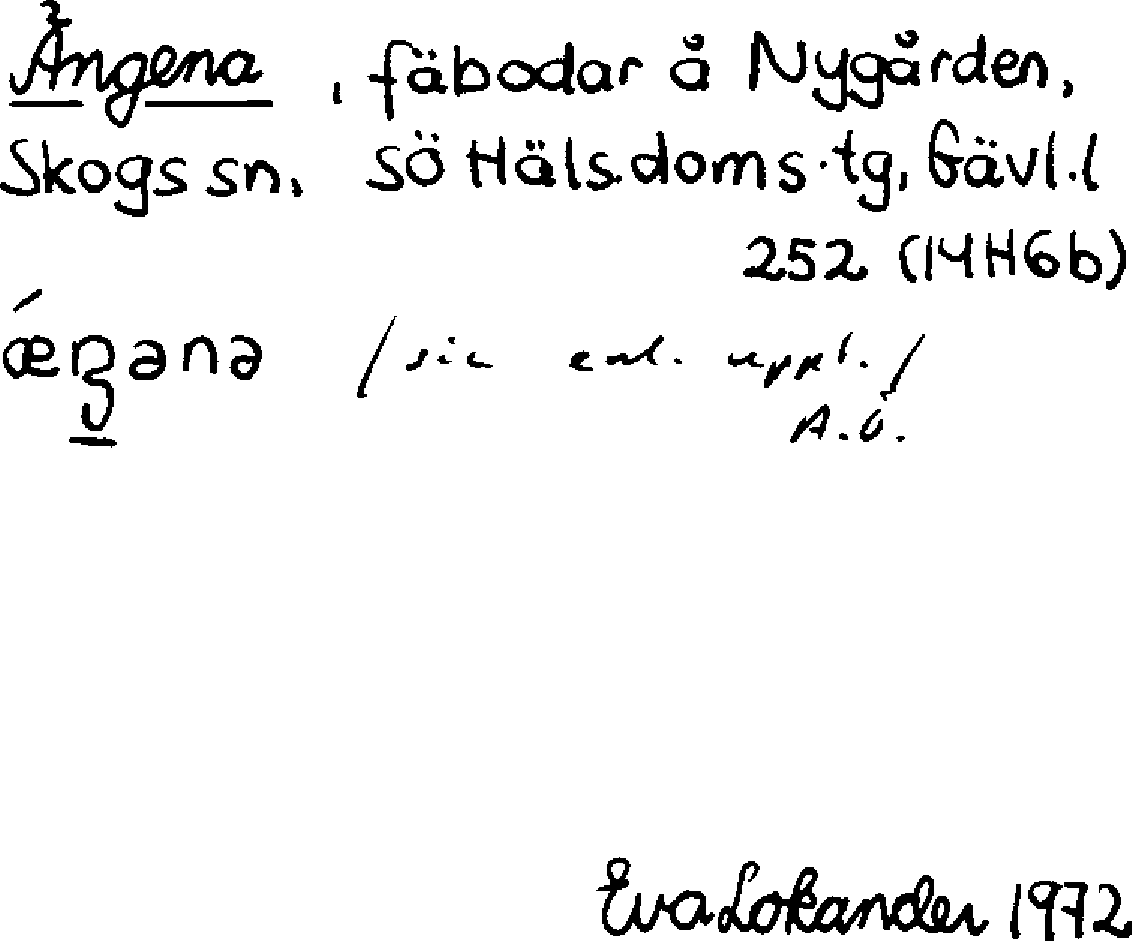 Ängena, fäbodar å Nygården,
Skogs sn. SÖ Häls.doms.tg, Gävl.l
252 (14H6b)
/sic enl. uppt./
A.Ö.
Eva Lokander 1972